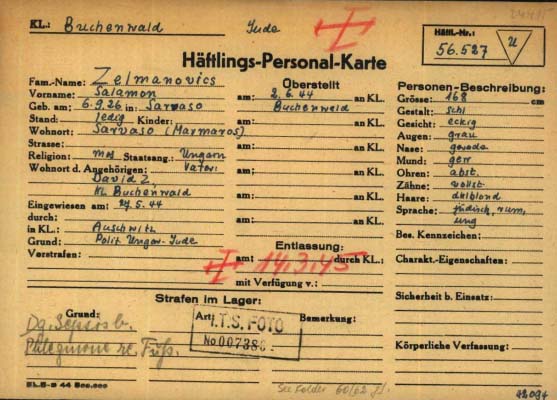 KL.: Buchenwald
Jude
Häftl.-Nr.:
56.527
U
Häftlings-Personal-Karte
Fam.-Name: Zelmanovics
Vorname: Salamon
Geb. am: 6.9.26 in: Sarvaso
Stand: ledig Kinder:
Wohnort: Sarvaso (Marmaros)
Strasse:
Religion: mos. Staatsang.: Ungarn
Wohnort d. Angehörigen: Vater:
David Z.
KL Buchenwald
Eingewiesen am: 5.44
durch:
in KL.: Auschwitz
Grund: Polit. Ungar-Jude
Vorstrafen:
Überstellt
am: 2.6.44 an KL.
Buchenwald
am: an KL.
am: an KL.
am: an KL.
am: an KL.
am: an KL.
Entlassung:
am: 14.3.45 durch KL.:
mit Verfügung v.:
Personen-Beschreibung:
Grösse: 168 cm
Gestalt: schl
Gesicht: eckig
Augen: grau
Nase: gerade
Mund:
Ohren: abst.
Zähne: vollst.
Haare: dklblond
Sprache: jüdisch, rum,
ung
Bes. Kennzeichen:
Charakt.-Eigenschaften:
Sicherheit b. Einsatz:
Körperliche Verfassung:
Strafen im Lager:
Grund: Art: Bemerkung:
I.T.S. FOTO
No 007386
Phlegmone re. Fuß.
See Folder 60/62